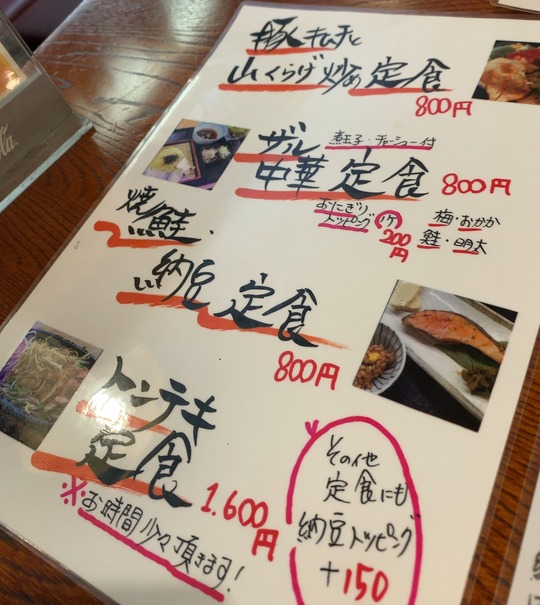 豚キムチと
山くらげ炒め定食
800円
ザル 煮玉子・チャーシュー付
中華定食 800円
おにぎり
トッピング 1ケ 200円
梅・おかか
鮭・明太
焼鮭・
納豆定食
800円
トンテキ
定食
1.600円
※お時間少々頂きます!
その他
定食にも
納豆トッピング
+150